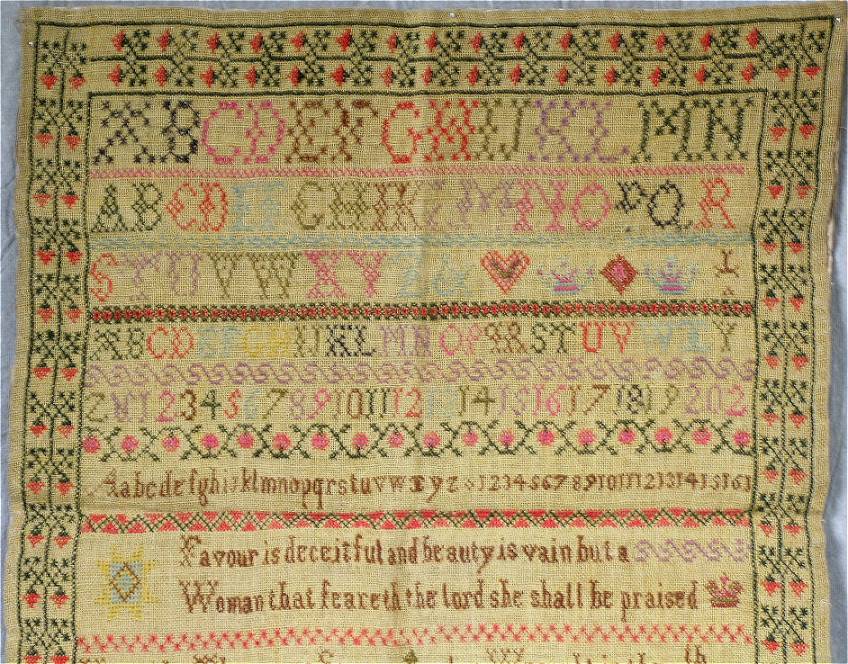 ABCDEFGHIJKLMN
ABCDEFGHIKLMNOPQR
STUVWXYZ&
ABCDEFGHIJKLMNOPQRSTUVWXY
Z&123456789101112131415161718192021
Aabcdefghijklmnopqrstuvwxyz 12345678910111213141516
Favour is deceitful and beauty is vain but a
Woman that feareth the lord she shall be praised